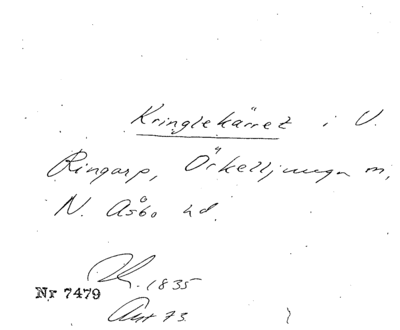 Kringlekärret i V.
Ringarp, Örkelljunga m,
N. Åsbo hd.
1835
Nr 7479
73